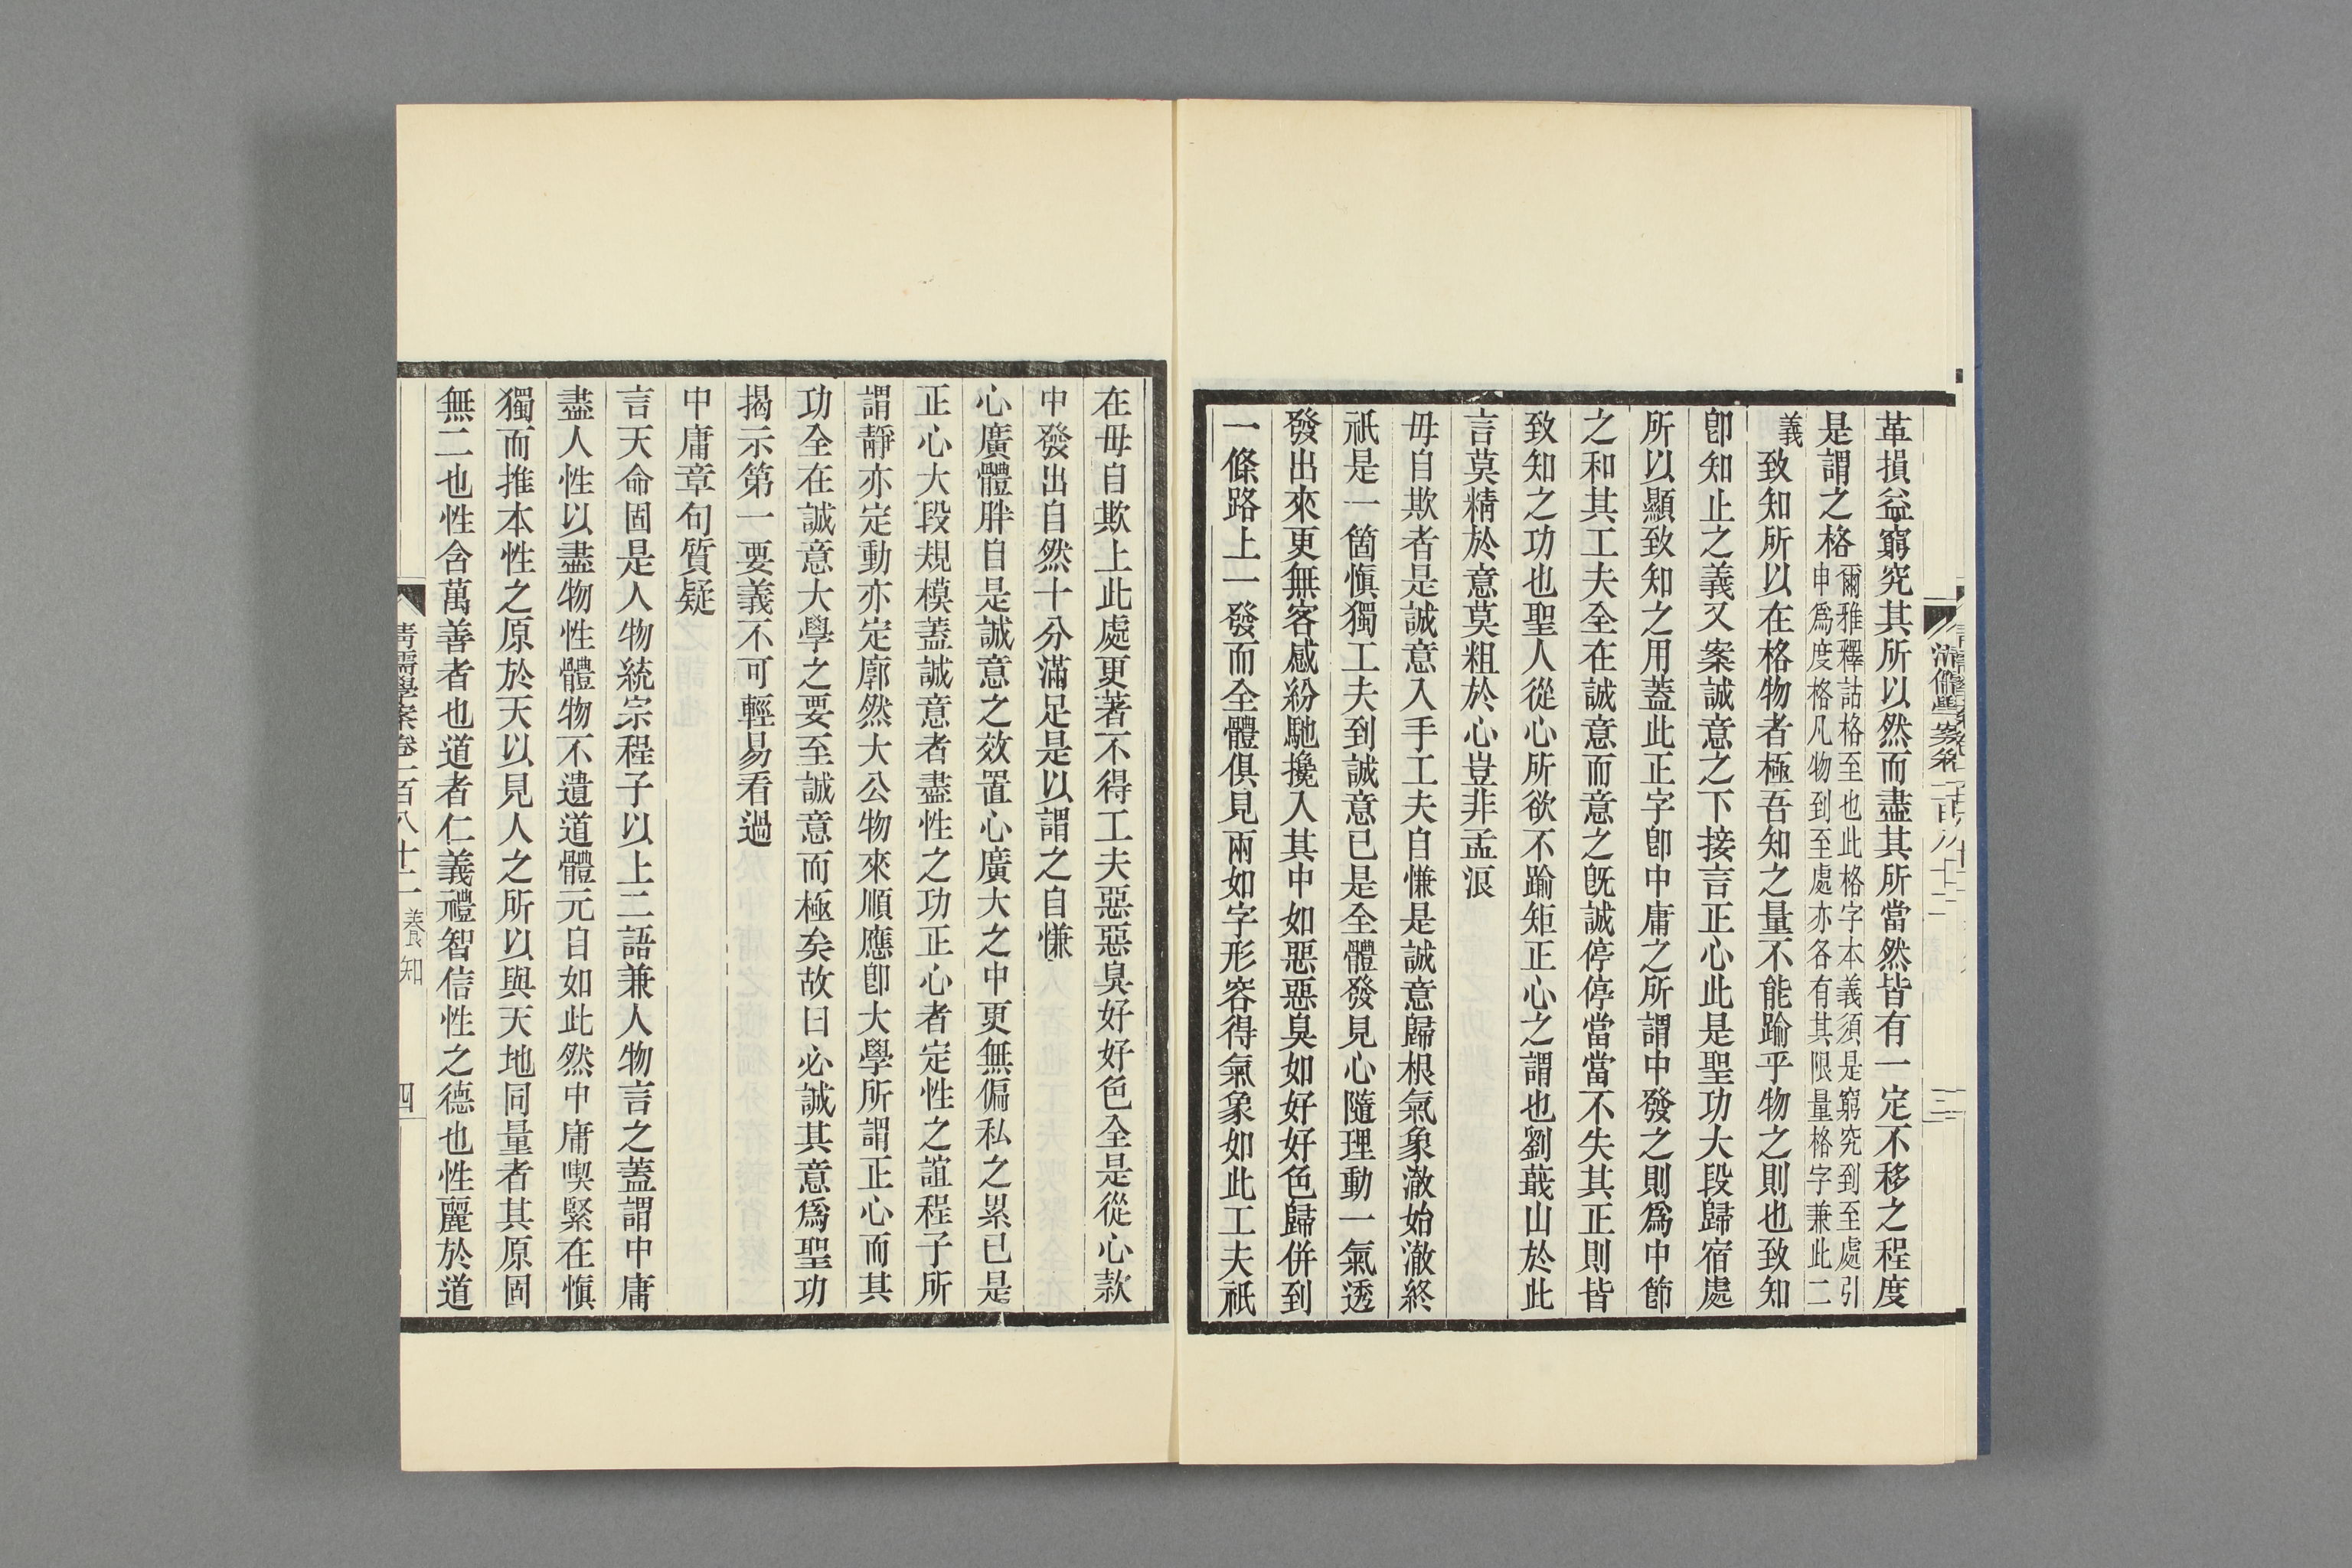 革損益窮究其所以然而盡其所當然皆有一定不移之程度
是謂之格爾雅釋詁格至也此格字本義須是窮究到至處引
申爲度格凡物到至處亦各有其限量格字兼此二
義致知所以在格物者極吾知之量不能踰乎物之則也致知
卽知止之義又案誠意之下接言正心此是聖功大段歸宿處
所以顯致知之用蓋此正字卽中庸之所謂中發之則爲中節
之和其工夫全在誠意而意之旣誠停停當當不失其正則皆
致知之功也聖人從心所欲不踰矩正心之謂也劉蕺山於此
言莫精於意莫粗於心豈非孟浪
毋自欺者是誠意入手工夫自慊是誠意歸根氣象澈始澈終
祇是一箇愼獨工夫到誠意已是全體發見心隨理動一氣透
發出來更無客感紛馳攙入其中如惡惡臭如好好色歸併到
一條路上一發而全體俱見兩如字形容得氣象如此工夫祇
清儒學案卷一百八十二
三
在毋自欺上此處更著不得工夫惡惡臭好好色全是從心款
中發出自然十分滿足是以謂之自慊
心廣體胖自是誠意之效置心廣大之中更無偏私之累已是
正心大段規模蓋誠意者盡性之功正心者定性之誼程子所
謂靜亦定動亦定廓然大公物來順應卽大學所謂正心而其
功全在誠意大學之要至誠意而極矣故曰必誠其意爲聖功
揭示第一要義不可輕易看過
中庸章句質疑
言天命固是人物統宗程子以上二語兼人物言之蓋謂中庸
盡人性以盡物性體物不遺道體元自如此然中庸喫緊在愼
獨而推本性之原於天以見人之所以與天地同量者其原固
無二也性含萬善者也道者仁義禮智信性之德也性麗於道
清儒學案卷一百八十二 養知
四